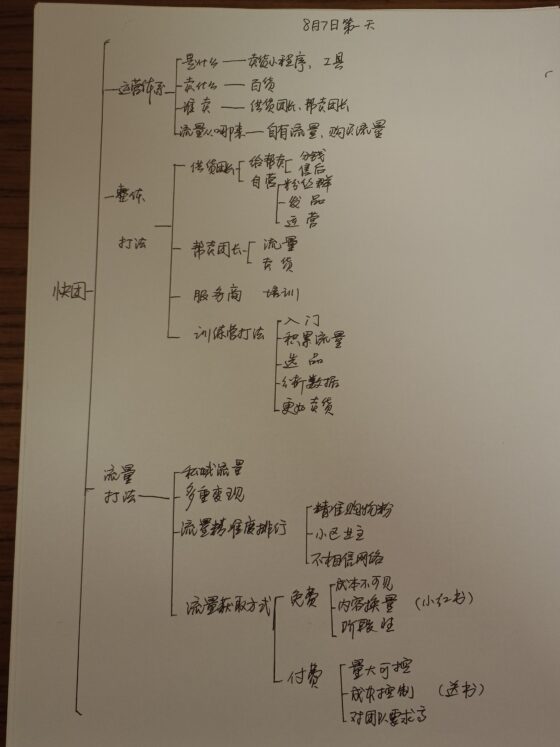 8月7日第一天
快团
运营体系
是什么 — 卖货小程序、工具
卖什么 — 百货
谁卖 — 供货团长、帮卖团长
流量从哪来 — 自有流量、购买流量
整体
打法
供货团长
给帮卖
分钱
售后
自营
粉丝群
发品
运营
帮卖团长
流量
卖货
服务商 培训
训练营打法
入门
积累流量
选品
分析数据
更好卖货
流量
打法
私域流量
多重变现
流量精准度排行
精准购物粉
小区业主
不相信网络
流量获取方式
免费
成本不可见
内容换量 (小红书)
阶段性
付费
量大可控
成本控制 (送书)
对团队要求高